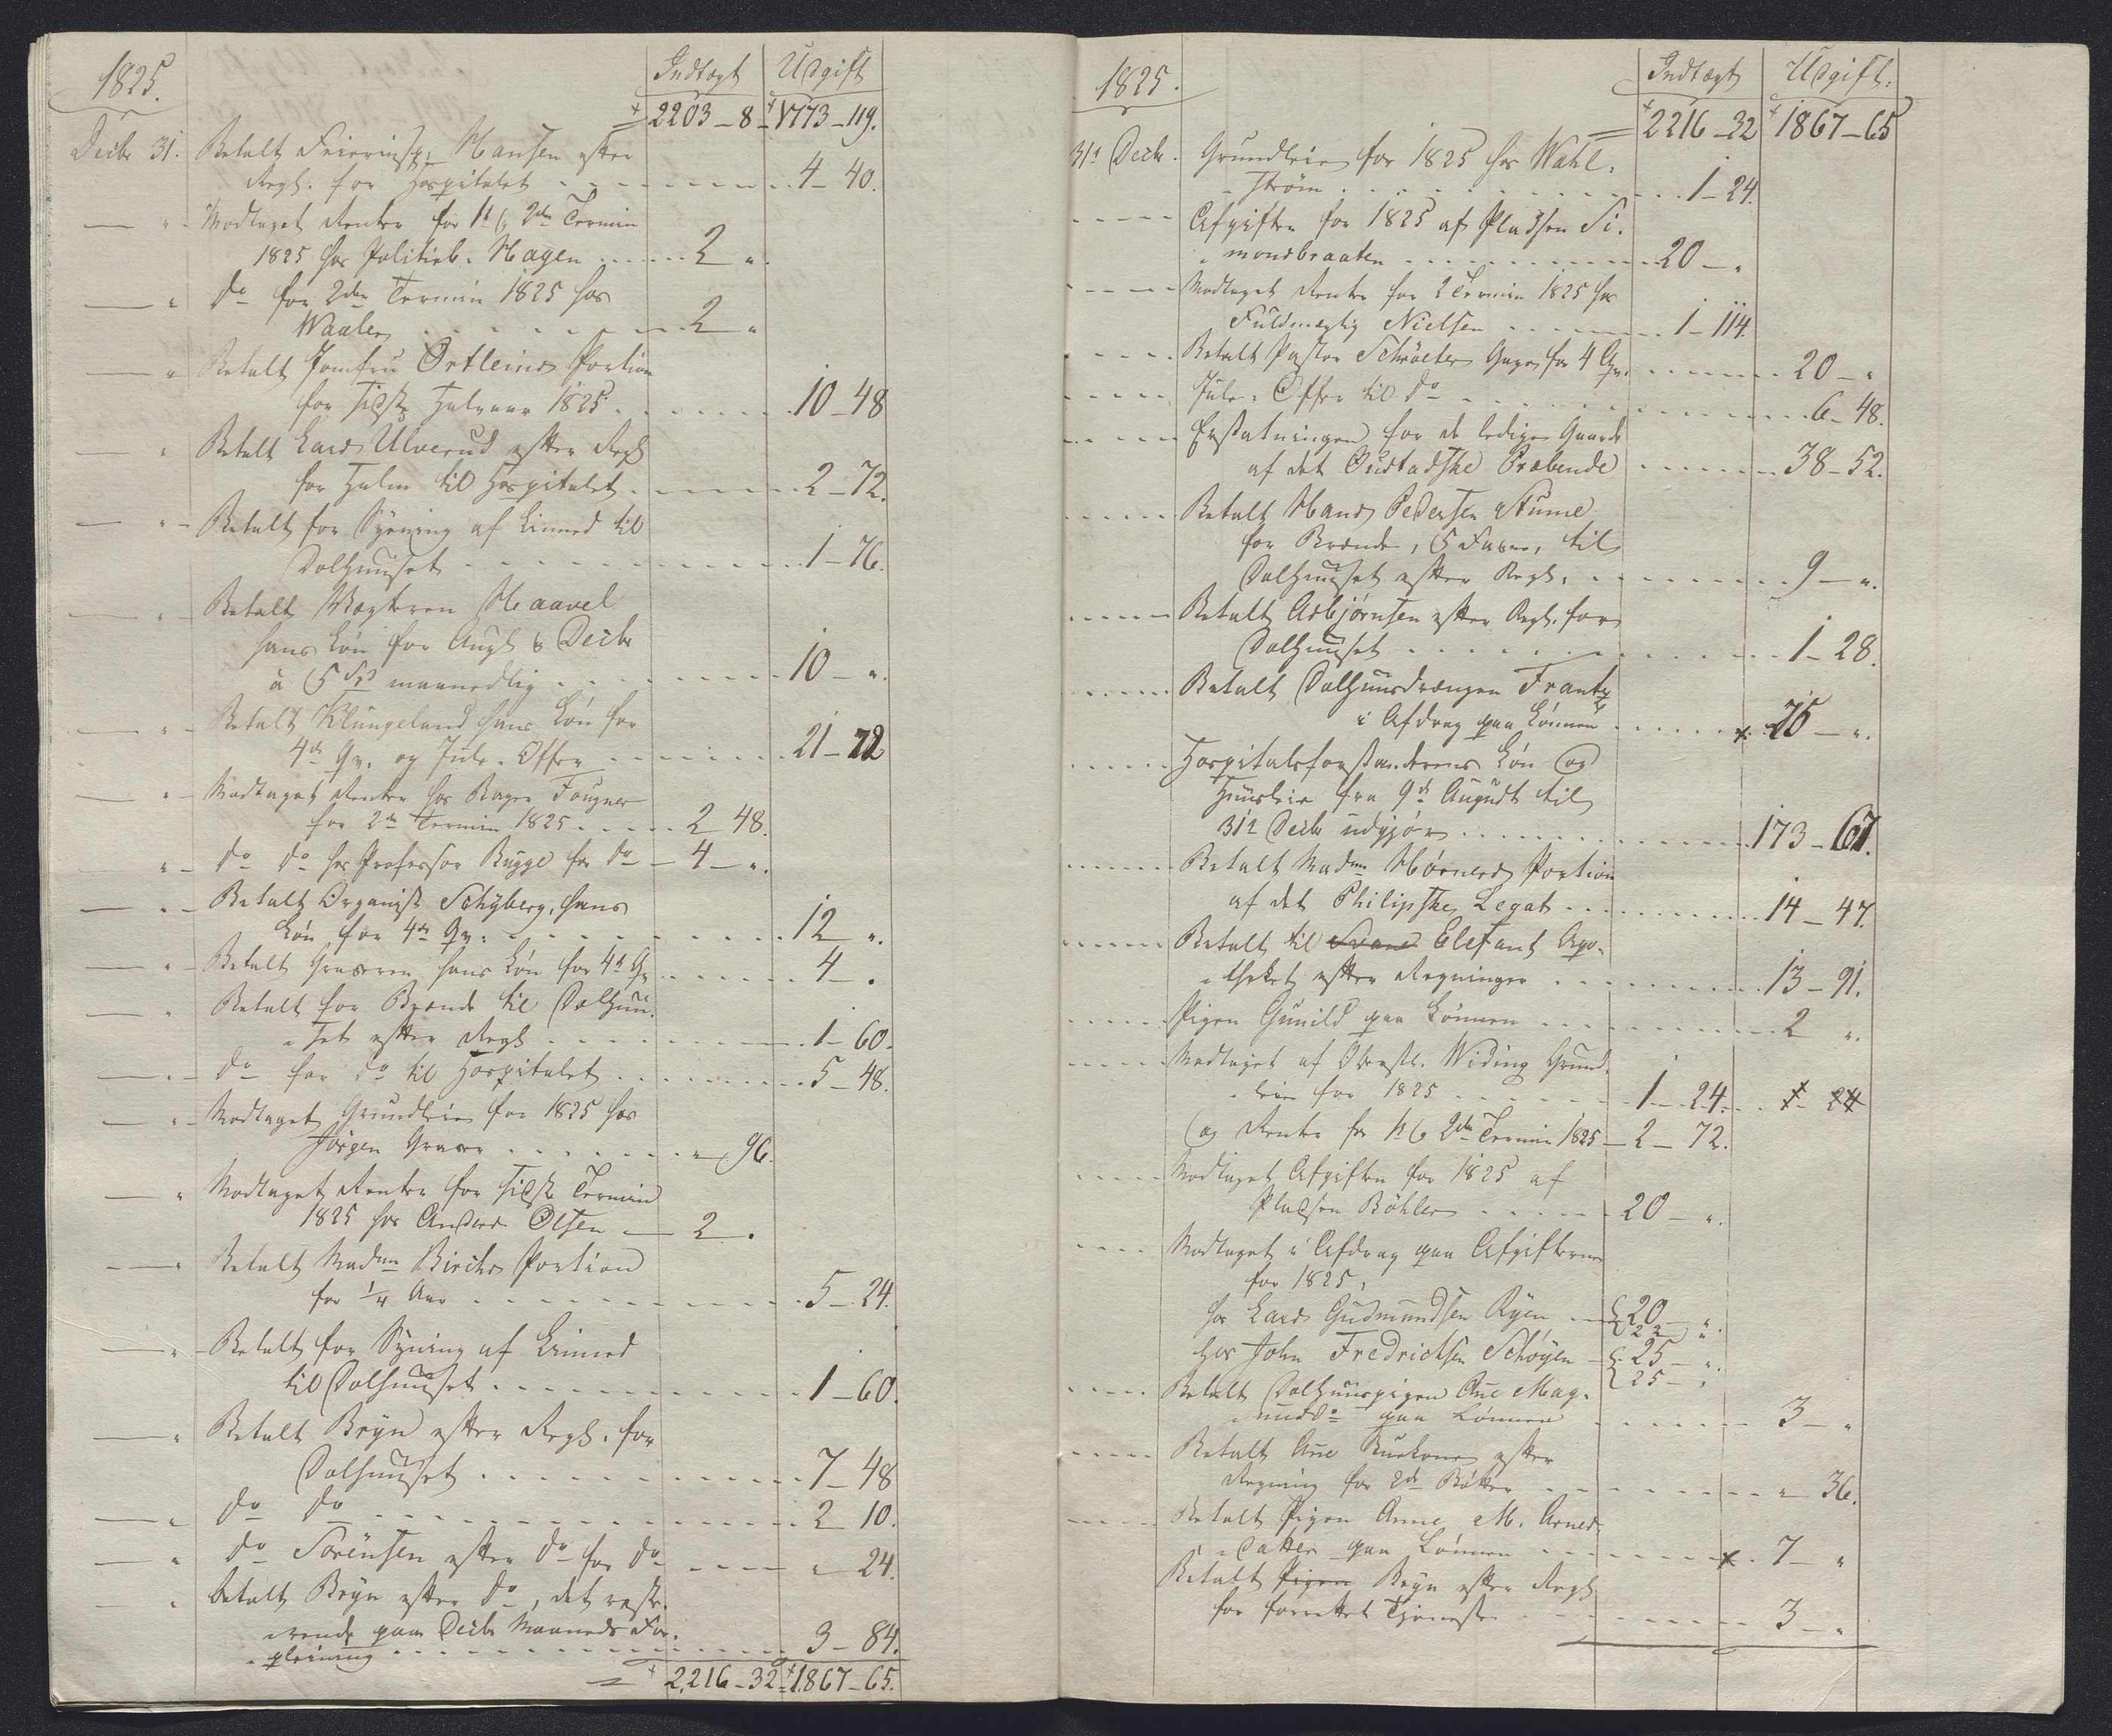 1825.
Indtægt Udgift
2203-8 1773-119.
Decbr 31. Betalt Feierinsp. Hansen efter
Regh. for Hospitalet 4-40.
Modtaget Renter for 1te & 2den Termin
1825 hos Politieb. Hagen 2 "
do for 2den Termin 1825 hos
Waaler 2 "
Betalt Jomfru Ortleins Portion
for sidste Halvaar 1825. 10-48
Betalt Lars Ulverud efter Regh
for Halm til Hospitalet 2-72.
Betalt for Syening af Linned til
Dolhuuset 1-76.
Betalt Vægteren Haavel
hans Løn for Augt & Decbr
à 5 Spd maanedlig 10-"
Betalt Klungeland hans Løn for
4de Qv. og Jule-Offer 21-72
Modtaget Renter hos Bager Fougner
for 2den Termin 1825 2 48.
do do hos Professor Bugge for do 4-"
Betalt Organist Schyberg, hans
Løn for 4de Qv. 12 "
Betalt Graveren hans Løn for 4de Qv 4-"
Betalt for Brænde til Dolhuu-
set efter Regh 1-60.
do for do til Hospitalet 5-48.
Modtaget Grundleie for 1825 hos
Jörgen Graver " 96.
Modtaget Renter for sidste Termin
1825 hos Anders Olsen 2 "
Betalt Madme Birchs Portion
for 1/4 Aar 5-24.
Betalt for Syning af Linned
til Dolhuuset 1-60.
Betalt Bryn efter Regh. for
Dolhuuset 7-48
do do 2 10.
do Sörensen efter do for do " 24.
betalt Bryn efter do, det reste-
rende paa Decbr Maaneds For-
pleining 3-84.
= 2216-32 1867-65.
1825.
Indtægt Udgift.
2216-32 1867-65
31te Decbr. Grundleie for 1825 hos Wahl-
strøm 1-24.
Afgiften for 1825 af Pladsen Si-
monsbraaten 20-"
Modtaget Renter for 2 Termin 1825 hos
Fuldmægtig Nielsen 1-114.
Betalt Pastor Schröeter Gage for 4 Qv. 20-"
Jule-Offer til do 6-48.
Erstatningen for de ledige Gaarde
af det Oustadske Præbende 38-52.
Betalt Hans Pedersen Stume
for Brænde, 5 Favne, til
Dolhuuset efter Regh. 9-"
Betalt Asbjørnsen efter Regh. for
Dolhuuset 1-28.
Betalt Dolhuusdrængen Frantz
i Afdrag paa Lønnen 75-"
Hospitalsforstanderens Løn og
Huusleie fra 9de August til
31te Decbr udgjør 173-67.
Betalt Madme Hörners Portion
af det Philipske Legat 14-47.
Betalt til Svane Elefant Apo-
theket efter Regninger 13-91.
Pigen Gunild paa Lønnen 2 "
Modtaget af Oberstl. Widing Grund-
leie for 1825 1-24. 1-24
og Renter for 1te & 2den Termin 1825 2-72.
Modtaget Afgiften for 1825 af
Pladsen Böhler 20-"
Modtaget i Afdrag paa Afgifterne
for 1825,
hos Lars Gudmundsen Ryen 20 "
22 "
hos John Fredrichsen Schöyen 25-"
25-"
Betalt Dolhuuspigen Ane Mag-
nusdr paa Lønnen 3-"
Betalt Ane Kuekone efter
Regning for 2de Bötter " 36.
Betalt Pigen Anne M. Arnes-
datter paa Lønnen 7-"
Betalt Pigen Bryn efter Regh
for forrettet Tjeneste 3-"